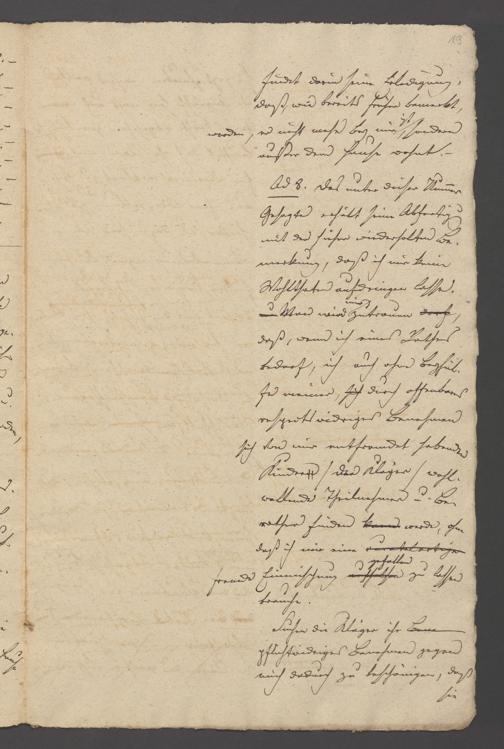 113
findet darin seine Erledigung,
daß wie bereits früher bemerkt
worden, er nicht mehr bey mir ist sondern
außer dem Hause wohnt.-
Ad 8. Das unter dieser Numer
Gesagte erhält seine Abfertigung
mit der früher wiederholten Be-
merkung, daß ich mir keine
Wohlthaten aufdringen lasse.
u Man wird mir zutrauen darf,
daß, wenn ich eines Rathes
bedarf, ich auch ohne Beyhül-
fe meiner, sich durch offenbares
respectswidriges Benehmen
sich von mir entfremdet habender
Kinder / der Kläger / wohl-
wollende Theilnehmer u. Be-
rather finden kann werde, ohne
daß ich mir eine
fremde Einmischung gefallen zu lassen
brauche.
Suchen die Kläger ihr Bene
pflichtwidriges Benehmen gegen
mich dadurch zu beschönigen, daß
sie